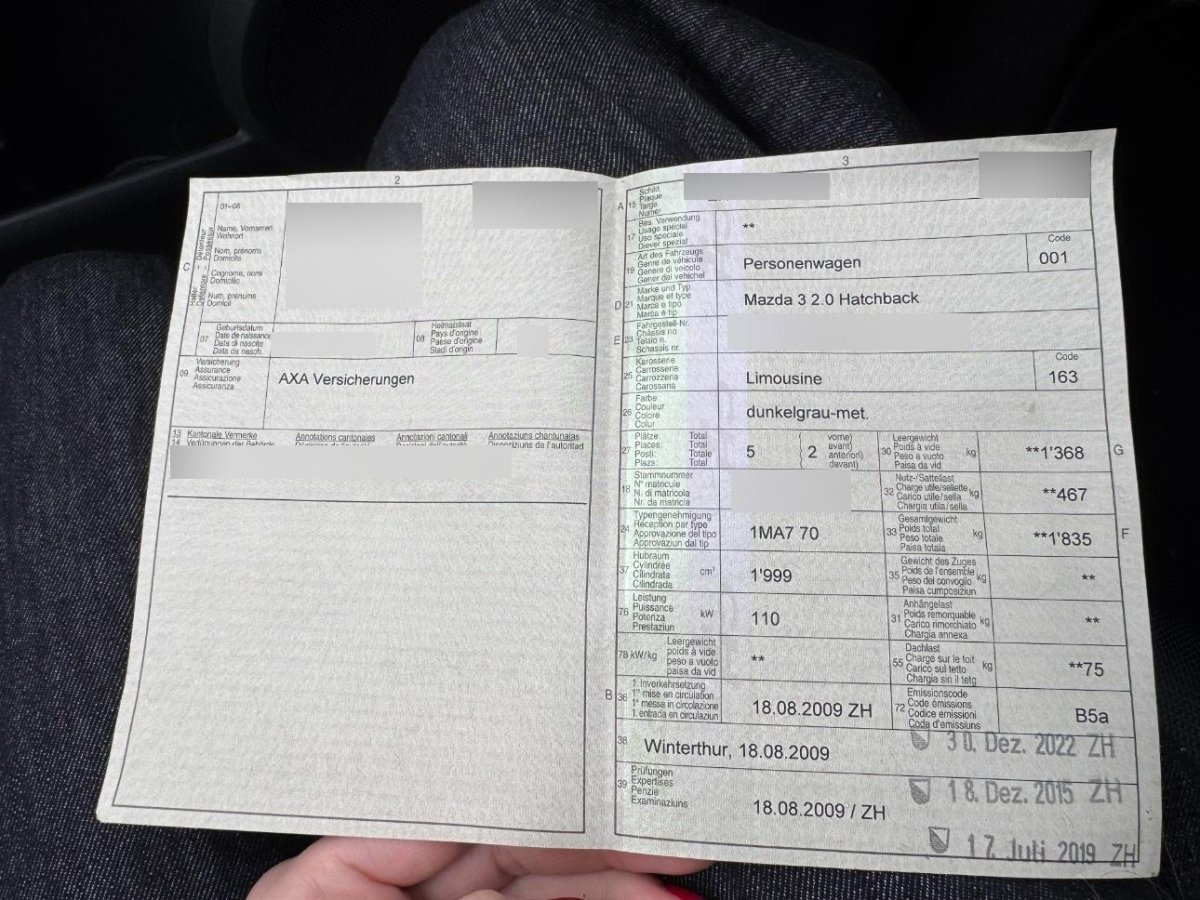 2
01-06
C
Name, Vornamen
Wohnort
Nom, prénoms
Domicile
Cognome, nomi
Domicilio
Num, prenums
Domicil
07
Geburtsdatum
Date de naissance
Data di nascita
Data da nasch.
08
Heimatstaat
Pays d'origine
Paese d'origine
Stadi d'origin
09
Versicherung
Assurance
Assicurazione
Assicuranza
AXA Versicherungen
13 Kantonale Vermerke Annotations cantonales Annotazioni cantonali Annotaziuns chantunalas
14 Verfügungen der Behörde
3
A 15
Schild
Plaque
Targa
Numer
17
Bes. Verwendung
Usage spécial
Uso speciale
Diever spezial
**
19
Art des Fahrzeugs
Genre de véhicule
Genere di veicolo
Gener dal vehichel
Personenwagen
Code
001
D 21
Marke und Typ
Marque et type
Marca e tipo
Marca e tip
Mazda 3 2.0 Hatchback
E 23
Fahrgestell-Nr.
Châssis no
Telaio n.
Schassis nr.
25
Karosserie
Carrosserie
Carrozzeria
Carossaria
Limousine
Code
163
26
Farbe
Couleur
Colore
Colur
dunkelgrau-met.
27
Plätze: Total
Places: Total
Posti: Totale
Plazs: Total
5
2
vorne)
avant)
anteriori)
davant)
30
Leergewicht
Poids à vide
Peso a vuoto
Paisa da vid
kg
**1'368
G
18
Stammnummer
N° matricule
N. di matricola
Nr. da matricla
32
Nutz-/Sattellast
Charge utile/sellette
Carico utile/sella
Chargia utila/sella
kg
**467
24
Typengenehmigung
Réception par type
Approvazione del tipo
Approvaziun dal tip
1MA7 70
33
Gesamtgewicht
Poids total
Peso totale
Paisa totala
kg
**1'835
F
37
Hubraum
Cylindrée
Cilindrata
Cilindrada
cm³
1'999
35
Gewicht des Zuges
Poids de l'ensemble
Peso del convoglio
Paisa cumposiziun
kg
**
76
Leistung
Puissance
Potenza
Prestaziun
kW
110
31
Anhängelast
Poids remorquable
Carico rimorchiato
Chargia annexa
kg
**
78 kW/kg
Leergewicht
poids à vide
peso a vuoto
paisa da vid
**
55
Dachlast
Charge sur le toit
Carico sul tetto
Chargia sin il tetg
kg
**75
B 36
1. Inverkehrsetzung
1re mise en circulation
1a messa in circolazione
1. entrada en circulaziun
18.08.2009 ZH
72
Emissionscode
Code émissions
Codice emissioni
Code d'emissiuns
B5a
38
Winterthur, 18.08.2009
30. Dez. 2022 ZH
39
Prüfungen
Expertises
Perizie
Examinaziuns
18.08.2009 / ZH
18. Dez. 2015 ZH
17. Juli 2019 ZH